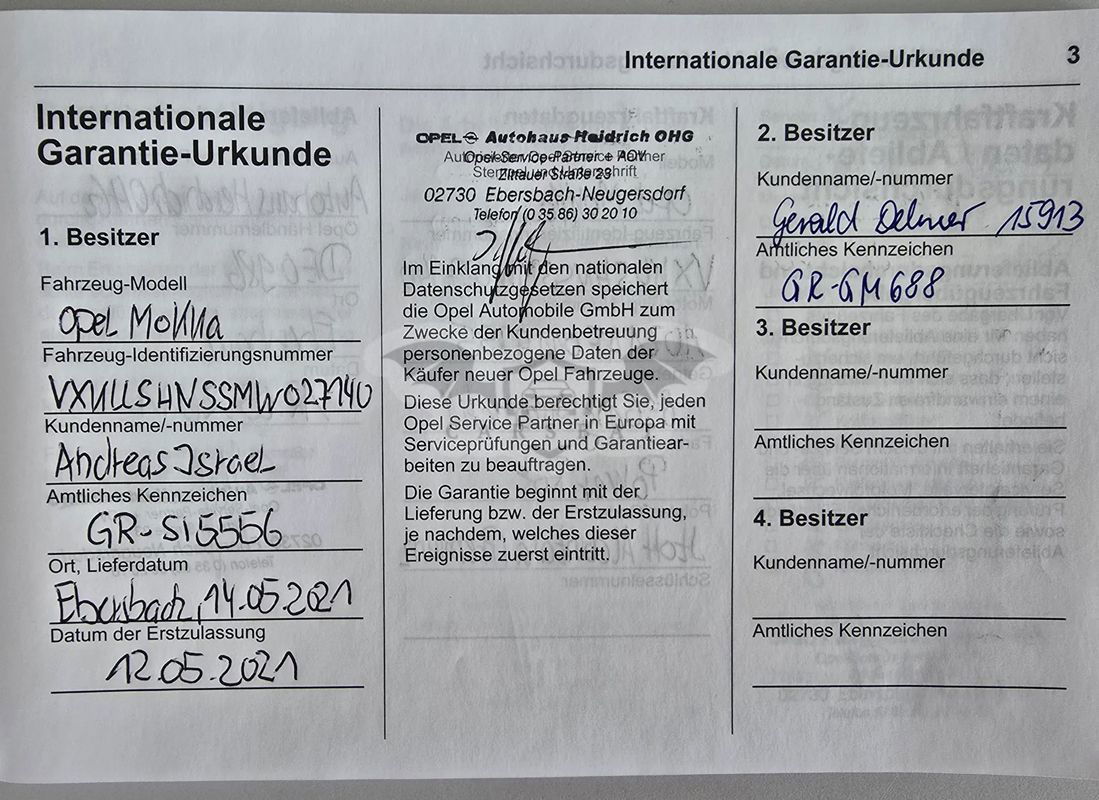 Internationale Garantie-Urkunde 3
Internationale
Garantie-Urkunde
1. Besitzer
Fahrzeug-Modell
Opel Mokka
Fahrzeug-Identifizierungsnummer
VXKUSHNSSMW027140
Kundenname/-nummer
Andreas Israel
Amtliches Kennzeichen
GR-SI5556
Ort, Lieferdatum
Ebersbach, 14.05.2021
Datum der Erstzulassung
12.05.2021
OPEL Autohaus Heidrich OHG
Opel Service Partner + AOV
Zittauer Straße 23
Stempel und Unterschrift
02730 Ebersbach-Neugersdorf
Telefon (0 35 86) 30 20 10
Im Einklang mit den nationalen
Datenschutzgesetzen speichert
die Opel Automobile GmbH zum
Zwecke der Kundenbetreuung
personenbezogene Daten der
Käufer neuer Opel Fahrzeuge.
Diese Urkunde berechtigt Sie, jeden
Opel Service Partner in Europa mit
Serviceprüfungen und Garantiear-
beiten zu beauftragen.
Die Garantie beginnt mit der
Lieferung bzw. der Erstzulassung,
je nachdem, welches dieser
Ereignisse zuerst eintritt.
2. Besitzer
Kundenname/-nummer
Gerald 15913
Amtliches Kennzeichen
GR-GM688
3. Besitzer
Kundenname/-nummer
Amtliches Kennzeichen
4. Besitzer
Kundenname/-nummer
Amtliches Kennzeichen